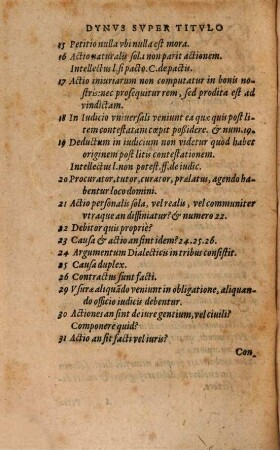 DYNVS SVPER TITVLO
15 Petitio nulla vbi nulla est mora.
16 Actio naturalis sola non parit actionem.
Intellectus l. si pacto. C. de pactu.
17 Actio iniuriarum non computatur in bonis no-
stris: nec prosequitur rem, sed prodita est ad
vindictam.
18 In Iudicio vniuersali veniunt ea que quis post li
tem contestatam cœpit possidere. & num. 19.
19 Deductum in iudicium non videtur quod habet
originem post litis contestationem.
Intellectus l. non potest. ff. de iudic.
20 Procurator, tutor, curator, prælatus, agendo ha
bentur loco domini.
21 Actio personalis sola, vel realis, vel communiter
vtraque an diffiniatur? & numero 22.
22 Debitor quis proprie?
23 Causa & actio an sint idem? 24. 25. 26.
24 Argumentum Dialecticis in tribus consistit.
25 Causa duplex.
26 Contractus sunt facti.
29 Vsuræ aliquãdo veniunt in obligatione, aliquan
do officio iudicis debentur.
30 Actiones an sint de iure gentium, vel ciuili?
Componere quid?
31 Actio an sit facti vel iuris?
Con